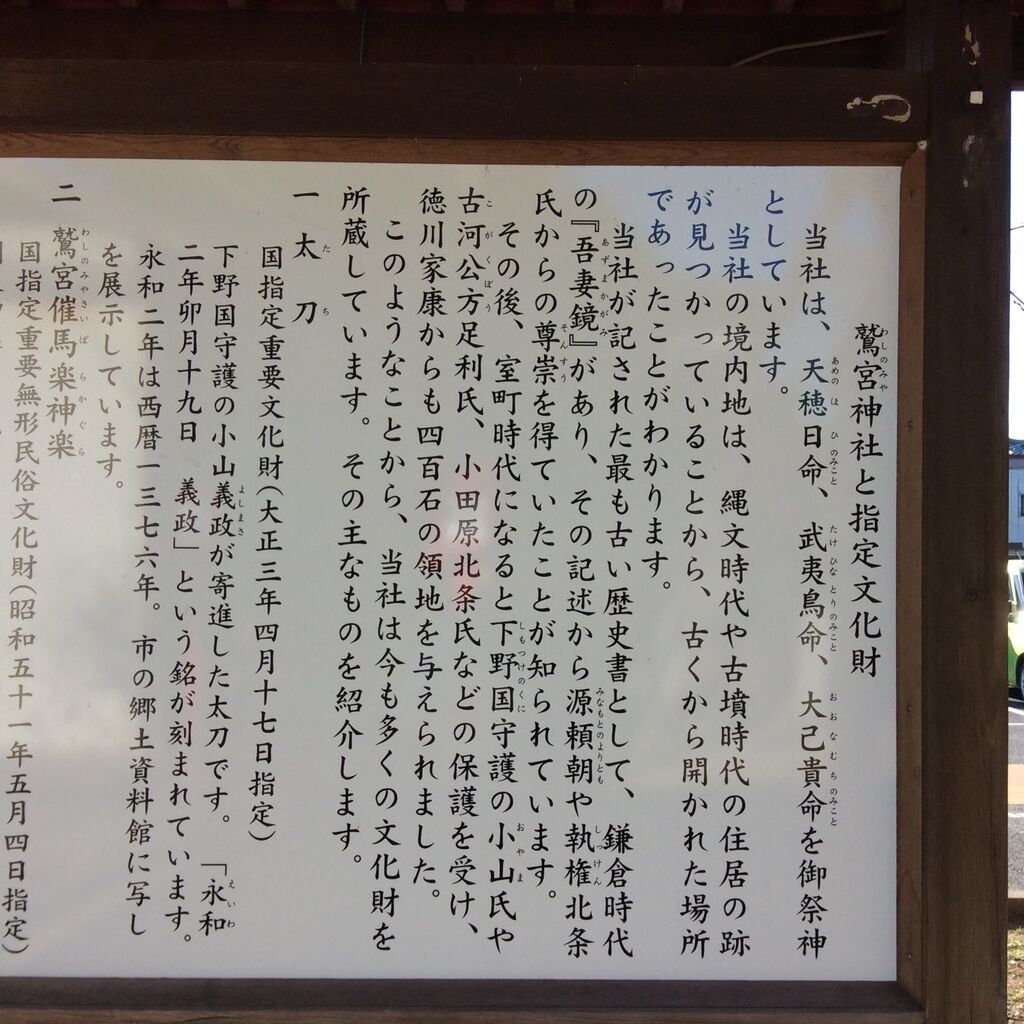 鷲宮神社と指定文化財
当社は、天穂日命、武夷鳥命、大己貴命を御祭神
としています。
当社の境内地は、縄文時代や古墳時代の住居の跡
が見つかっていることから、古くから開かれた場所
であったことがわかります。
当社が記された最も古い歴史書として、鎌倉時代
の『吾妻鏡』があり、その記述から源頼朝や執権北条
氏からの尊崇を得ていたことが知られています。
その後、室町時代になると下野国守護の小山氏や
古河公方足利氏、小田原北条氏などの保護を受け、
徳川家康からも四百石の領地を与えられました。
このようなことから、当社は今も多くの文化財を
所蔵しています。その主なものを紹介します。
一 太刀
国指定重要文化財(大正三年四月十七日指定)
下野国守護の小山義政が寄進した太刀です。「永和
二年卯月十九日 義政」という銘が刻まれています。
永和二年は西暦一三七六年。市の郷土資料館に写し
を展示しています。
二 鷲宮催馬楽神楽
国指定重要無形民俗文化財(昭和五十一年五月四日指定)